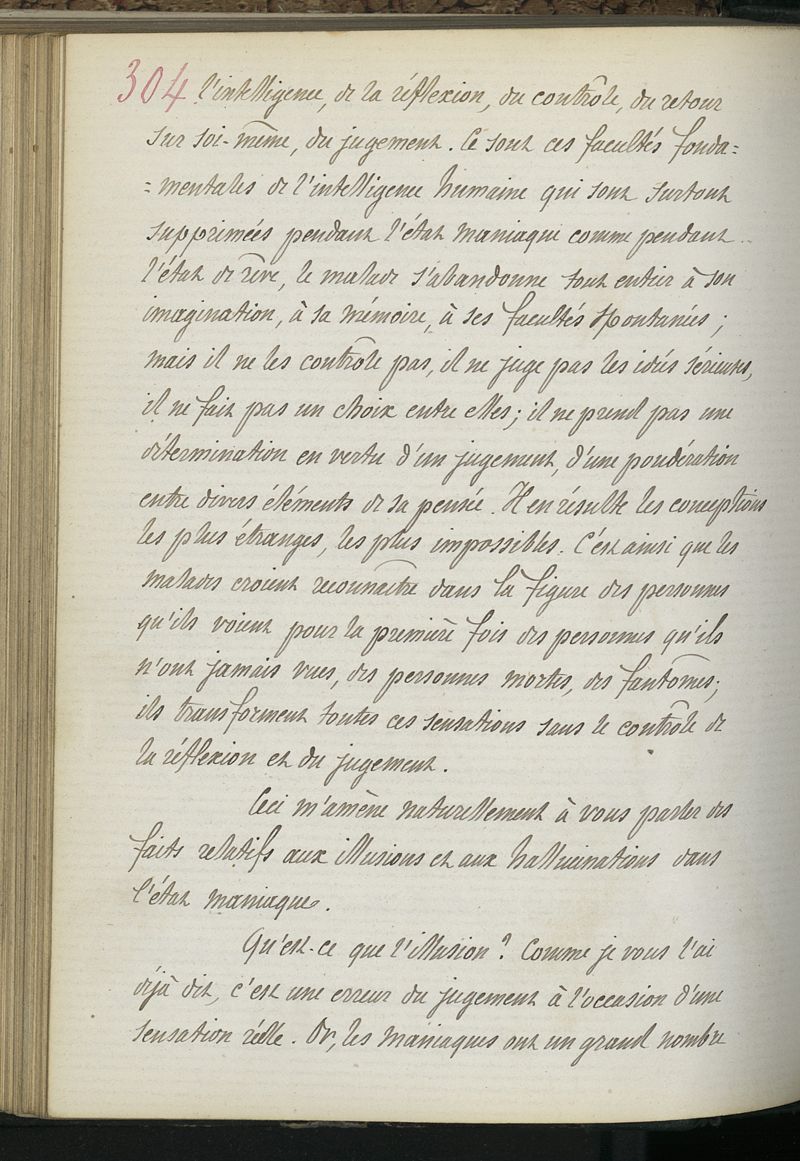 304 l'intelligence, de la réflexion, du contrôle, du retour
sur soi-même, du jugement. Ce sont ces facultés fonda=
=mentales de l'intelligence humaine qui sont surtout
supprimées pendant l'état maniaque comme pendant
l'état de rêve, le malade s'abandonne tout entier à son
imagination, à sa mémoire, à ses facultés spontanées;
mais il ne les contrôle pas, il ne juge pas les idées
il ne fait pas un choix entre elles; il ne prend pas une
détermination en vertu d'un jugement, d'une pondération
entre divers éléments de sa pensée. Il en résulte les conceptions
les plus étranges, les plus impossibles. C'est ainsi que les
malades croient reconnaître dans la figure des personnes
qu'ils voient pour la première fois des personnes qu'ils
n'ont jamais vues, des personnes mortes, des fantômes;
ils transforment toutes ces sensations sans le contrôle de
la réflexion et du jugement.
Ceci m'amène naturellement à vous parler des
faits relatifs aux illusions et aux hallucinations dans
l'état maniaque.
Qu'est-ce que l'illusion? Comme je vous l'ai
déjà dit, c'est une erreur du jugement à l'occasion d'une
sensation réelle. Or, les maniaques ont un grand nombre